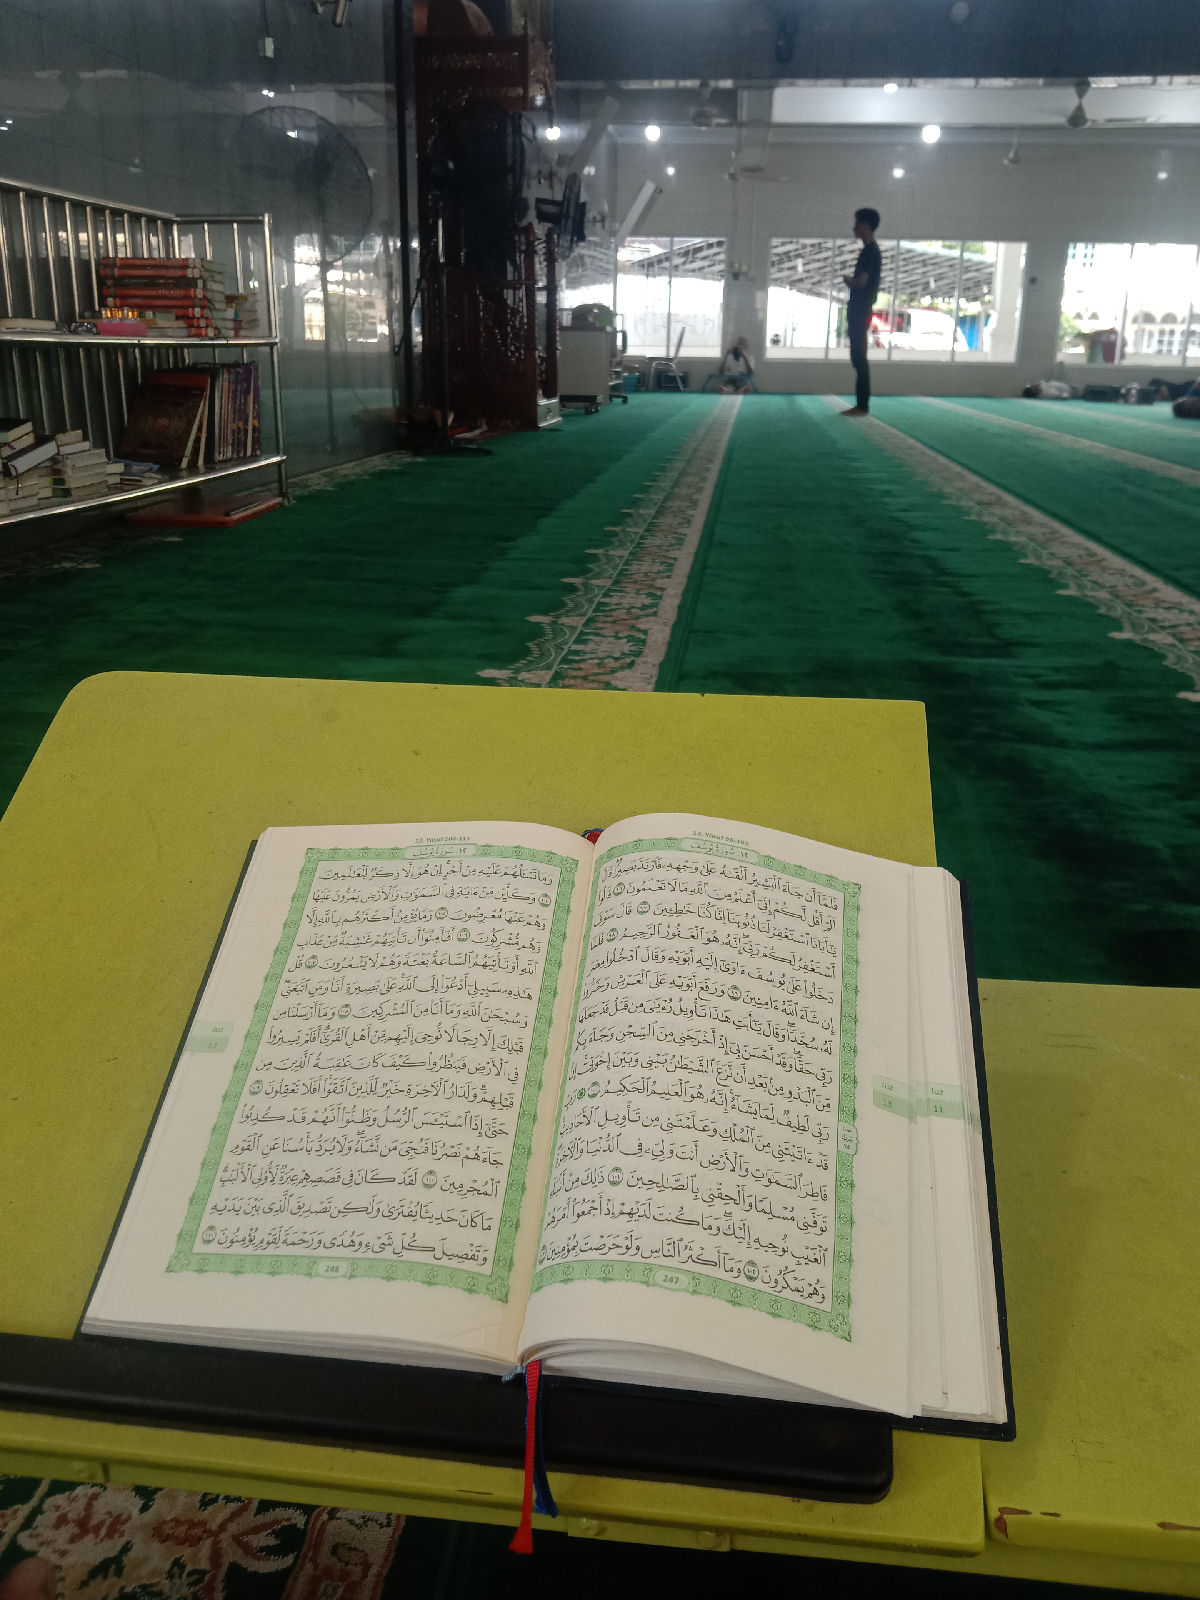 12. Yusuf 96-103
١٢. سورة يوسف
فَلَمَّآ أَن جَآءَ ٱلْبَشِيرُ أَلْقَىٰهُ عَلَىٰ وَجْهِهِۦ فَٱرْتَدَّ بَصِيرًا ۖ قَالَ
أَلَمْ أَقُل لَّكُمْ إِنِّىٓ أَعْلَمُ مِنَ ٱللَّهِ مَا لَا تَعْلَمُونَ ٩٦ قَالُوا۟
يَـٰٓأَبَانَا ٱسْتَغْفِرْ لَنَا ذُنُوبَنَآ إِنَّا كُنَّا خَـٰطِـِٔينَ ٩٧ قَالَ سَوْفَ
أَسْتَغْفِرُ لَكُمْ رَبِّىٓ ۖ إِنَّهُۥ هُوَ ٱلْغَفُورُ ٱلرَّحِيمُ ٩٨ فَلَمَّا
دَخَلُوا۟ عَلَىٰ يُوسُفَ ءَاوَىٰٓ إِلَيْهِ أَبَوَيْهِ وَقَالَ ٱدْخُلُوا۟ مِصْرَ
إِن شَآءَ ٱللَّهُ ءَامِنِينَ ٩٩ وَرَفَعَ أَبَوَيْهِ عَلَى ٱلْعَرْشِ وَخَرُّوا۟
لَهُۥ سُجَّدًا ۖ وَقَالَ يَـٰٓأَبَتِ هَـٰذَا تَأْوِيلُ رُءْيَـٰىَ مِن قَبْلُ قَدْ جَعَلَهَا
رَبِّى حَقًّا ۖ وَقَدْ أَحْسَنَ بِىٓ إِذْ أَخْرَجَنِى مِنَ ٱلسِّجْنِ وَجَآءَ بِكُم
مِّنَ ٱلْبَدْوِ مِنۢ بَعْدِ أَن نَّزَغَ ٱلشَّيْطَـٰنُ بَيْنِى وَبَيْنَ إِخْوَتِىٓ ۚ إِنَّ
رَبِّى لَطِيفٌ لِّمَا يَشَآءُ ۚ إِنَّهُۥ هُوَ ٱلْعَلِيمُ ٱلْحَكِيمُ ١٠٠ رَبِّ
قَدْ ءَاتَيْتَنِى مِنَ ٱلْمُلْكِ وَعَلَّمْتَنِى مِن تَأْوِيلِ ٱلْأَحَادِيثِ ۚ
فَاطِرَ ٱلسَّمَـٰوَٰتِ وَٱلْأَرْضِ أَنتَ وَلِىِّۦ فِى ٱلدُّنْيَا وَٱلْـَٔاخِرَةِ ۖ
تَوَفَّنِى مُسْلِمًا وَأَلْحِقْنِى بِٱلصَّـٰلِحِينَ ١٠١ ذَٰلِكَ مِنْ أَنۢبَآءِ
ٱلْغَيْبِ نُوحِيهِ إِلَيْكَ ۖ وَمَا كُنتَ لَدَيْهِمْ إِذْ أَجْمَعُوٓا۟ أَمْرَهُمْ
وَهُمْ يَمْكُرُونَ ١٠٢ وَمَآ أَكْثَرُ ٱلنَّاسِ وَلَوْ حَرَصْتَ بِمُؤْمِنِينَ ١٠٣
247
Juz 13
Juz 11
12. Yusuf 104-111
١٢. سورة يوسف
وَمَا تَسْـَٔلُهُمْ عَلَيْهِ مِنْ أَجْرٍ ۚ إِنْ هُوَ إِلَّا ذِكْرٌ لِّلْعَـٰلَمِينَ
١٠٤ وَكَأَيِّن مِّنْ ءَايَةٍ فِى ٱلسَّمَـٰوَٰتِ وَٱلْأَرْضِ يَمُرُّونَ عَلَيْهَا
وَهُمْ عَنْهَا مُعْرِضُونَ ١٠٥ وَمَا يُؤْمِنُ أَكْثَرُهُم بِٱللَّهِ إِلَّا
وَهُم مُّشْرِكُونَ ١٠٦ أَفَأَمِنُوٓا۟ أَن تَأْتِيَهُمْ غَـٰشِيَةٌ مِّنْ عَذَابِ
ٱللَّهِ أَوْ تَأْتِيَهُمُ ٱلسَّاعَةُ بَغْتَةً وَهُمْ لَا يَشْعُرُونَ ١٠٧ قُلْ
هَـٰذِهِۦ سَبِيلِىٓ أَدْعُوٓا۟ إِلَى ٱللَّهِ ۚ عَلَىٰ بَصِيرَةٍ أَنَا۠ وَمَنِ ٱتَّبَعَنِى ۖ
وَسُبْحَـٰنَ ٱللَّهِ وَمَآ أَنَا۠ مِنَ ٱلْمُشْرِكِينَ ١٠٨ وَمَآ أَرْسَلْنَا مِن
قَبْلِكَ إِلَّا رِجَالًا نُّوحِىٓ إِلَيْهِم مِّنْ أَهْلِ ٱلْقُرَىٰٓ ۗ أَفَلَمْ يَسِيرُوا۟
فِى ٱلْأَرْضِ فَيَنظُرُوا۟ كَيْفَ كَانَ عَـٰقِبَةُ ٱلَّذِينَ مِن
قَبْلِهِمْ ۗ وَلَدَارُ ٱلْـَٔاخِرَةِ خَيْرٌ لِّلَّذِينَ ٱتَّقَوْا۟ ۗ أَفَلَا تَعْقِلُونَ ١٠٩
حَتَّىٰٓ إِذَا ٱسْتَيْـَٔسَ ٱلرُّسُلُ وَظَنُّوٓا۟ أَنَّهُمْ قَدْ كُذِبُوا۟
جَآءَهُمْ نَصْرُنَا فَنُجِّىَ مَن نَّشَآءُ ۖ وَلَا يُرَدُّ بَأْسُنَا عَنِ ٱلْقَوْمِ
ٱلْمُجْرِمِينَ ١١٠ لَقَدْ كَانَ فِى قَصَصِهِمْ عِبْرَةٌ لِّأُو۟لِى ٱلْأَلْبَـٰبِ ۗ
مَا كَانَ حَدِيثًا يُفْتَرَىٰ وَلَـٰكِن تَصْدِيقَ ٱلَّذِى بَيْنَ يَدَيْهِ
وَتَفْصِيلَ كُلِّ شَىْءٍ وَهُدًى وَرَحْمَةً لِّقَوْمٍ يُؤْمِنُونَ ١١١
248
Juz 13